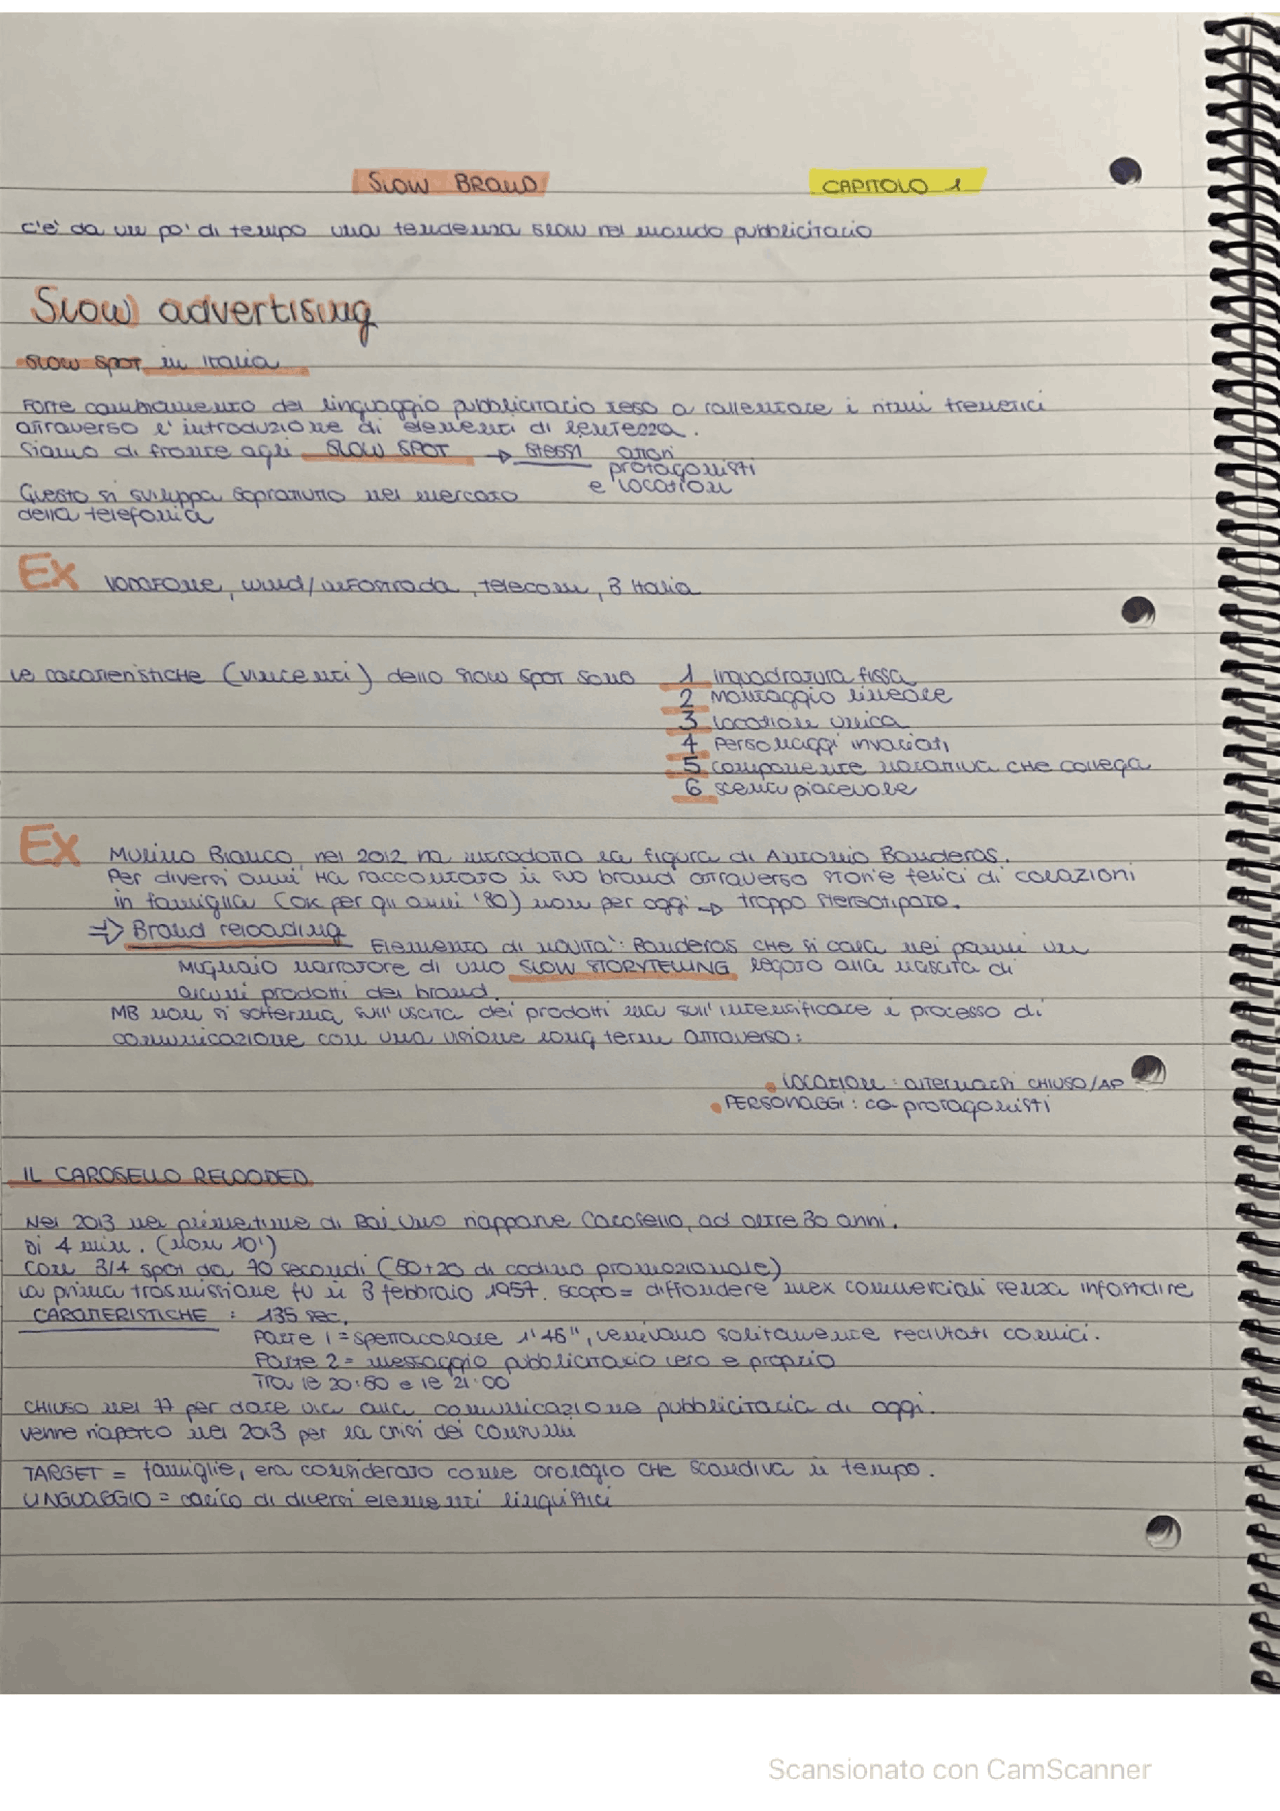 SLOW BRAND CAPITOLO 1
c'è da un po' di tempo una tendenza slow nel mondo pubblicitario
Slow advertising
SLOW SPOT in Italia
Forte cambiamento del linguaggio pubblicitario teso a rallentare i ritmi frenetici
attraverso l'introduzione di elementi di lentezza.
Siamo di fronte agli SLOW SPOT → stessi attori
protagonisti
e location
Questo si sviluppa sopratutto nel mercato
della telefonia
Ex Vodafone, wind/infostrada, telecom, 3 Italia
Le caratteristiche (vincenti) dello slow spot sono 1 inquadratura fissa
2 montaggio lineare
3 location unica
4 personaggi invariati
5 componente narrativa che collega
6 scena piacevole
Ex Mulino Bianco, nel 2012 ha introdotto la figura di Antonio Banderas.
Per diversi anni ha raccontato il suo brand attraverso storie felici di colazioni
in famiglia (ok per gli anni '80) non per oggi → troppo stereotipato.
⇒ Brand reloading Elemento di novità: Banderas che si cala nei panni un
Mugnaio narratore di uno SLOW STORYTELLING legato alla nascita di
alcuni prodotti del brand.
MB non si sofferma sull'uscita dei prodotti ma sull'intensificare i processo di
comunicazione con una visione long term attraverso:
• LOCATION: alternarsi CHIUSO/AP
• PERSONAGGI: co-protagonisti
IL CAROSELLO RELOADED
Nel 2013 nel primetime di Rai Uno riappare Carosello, ad oltre 30 anni.
Di 4 min. (non 10')
Con 3/4 spot da 70 secondi (50+20 di codino promozionale)
La prima trasmissione fu il 3 febbraio 1957. scopo= diffondere mex commerciali senza infastidire
CARATTERISTICHE : 135 sec.
Parte 1 = spettacolare 1'45", venivano solitamente recitati comici.
Parte 2 = messaggio pubblicitario vero e proprio
Tra le 20:50 e le 21:00
CHIUSO nel 77 per dare via alla comunicazione pubblicitaria di oggi.
Venne riaperto nel 2013 per la crisi dei consumi
TARGET = famiglie, era considerato come orologio che scandiva il tempo.
LINGUAGGIO = carico di diversi elementi linguistici
Scansionato con CamScanner